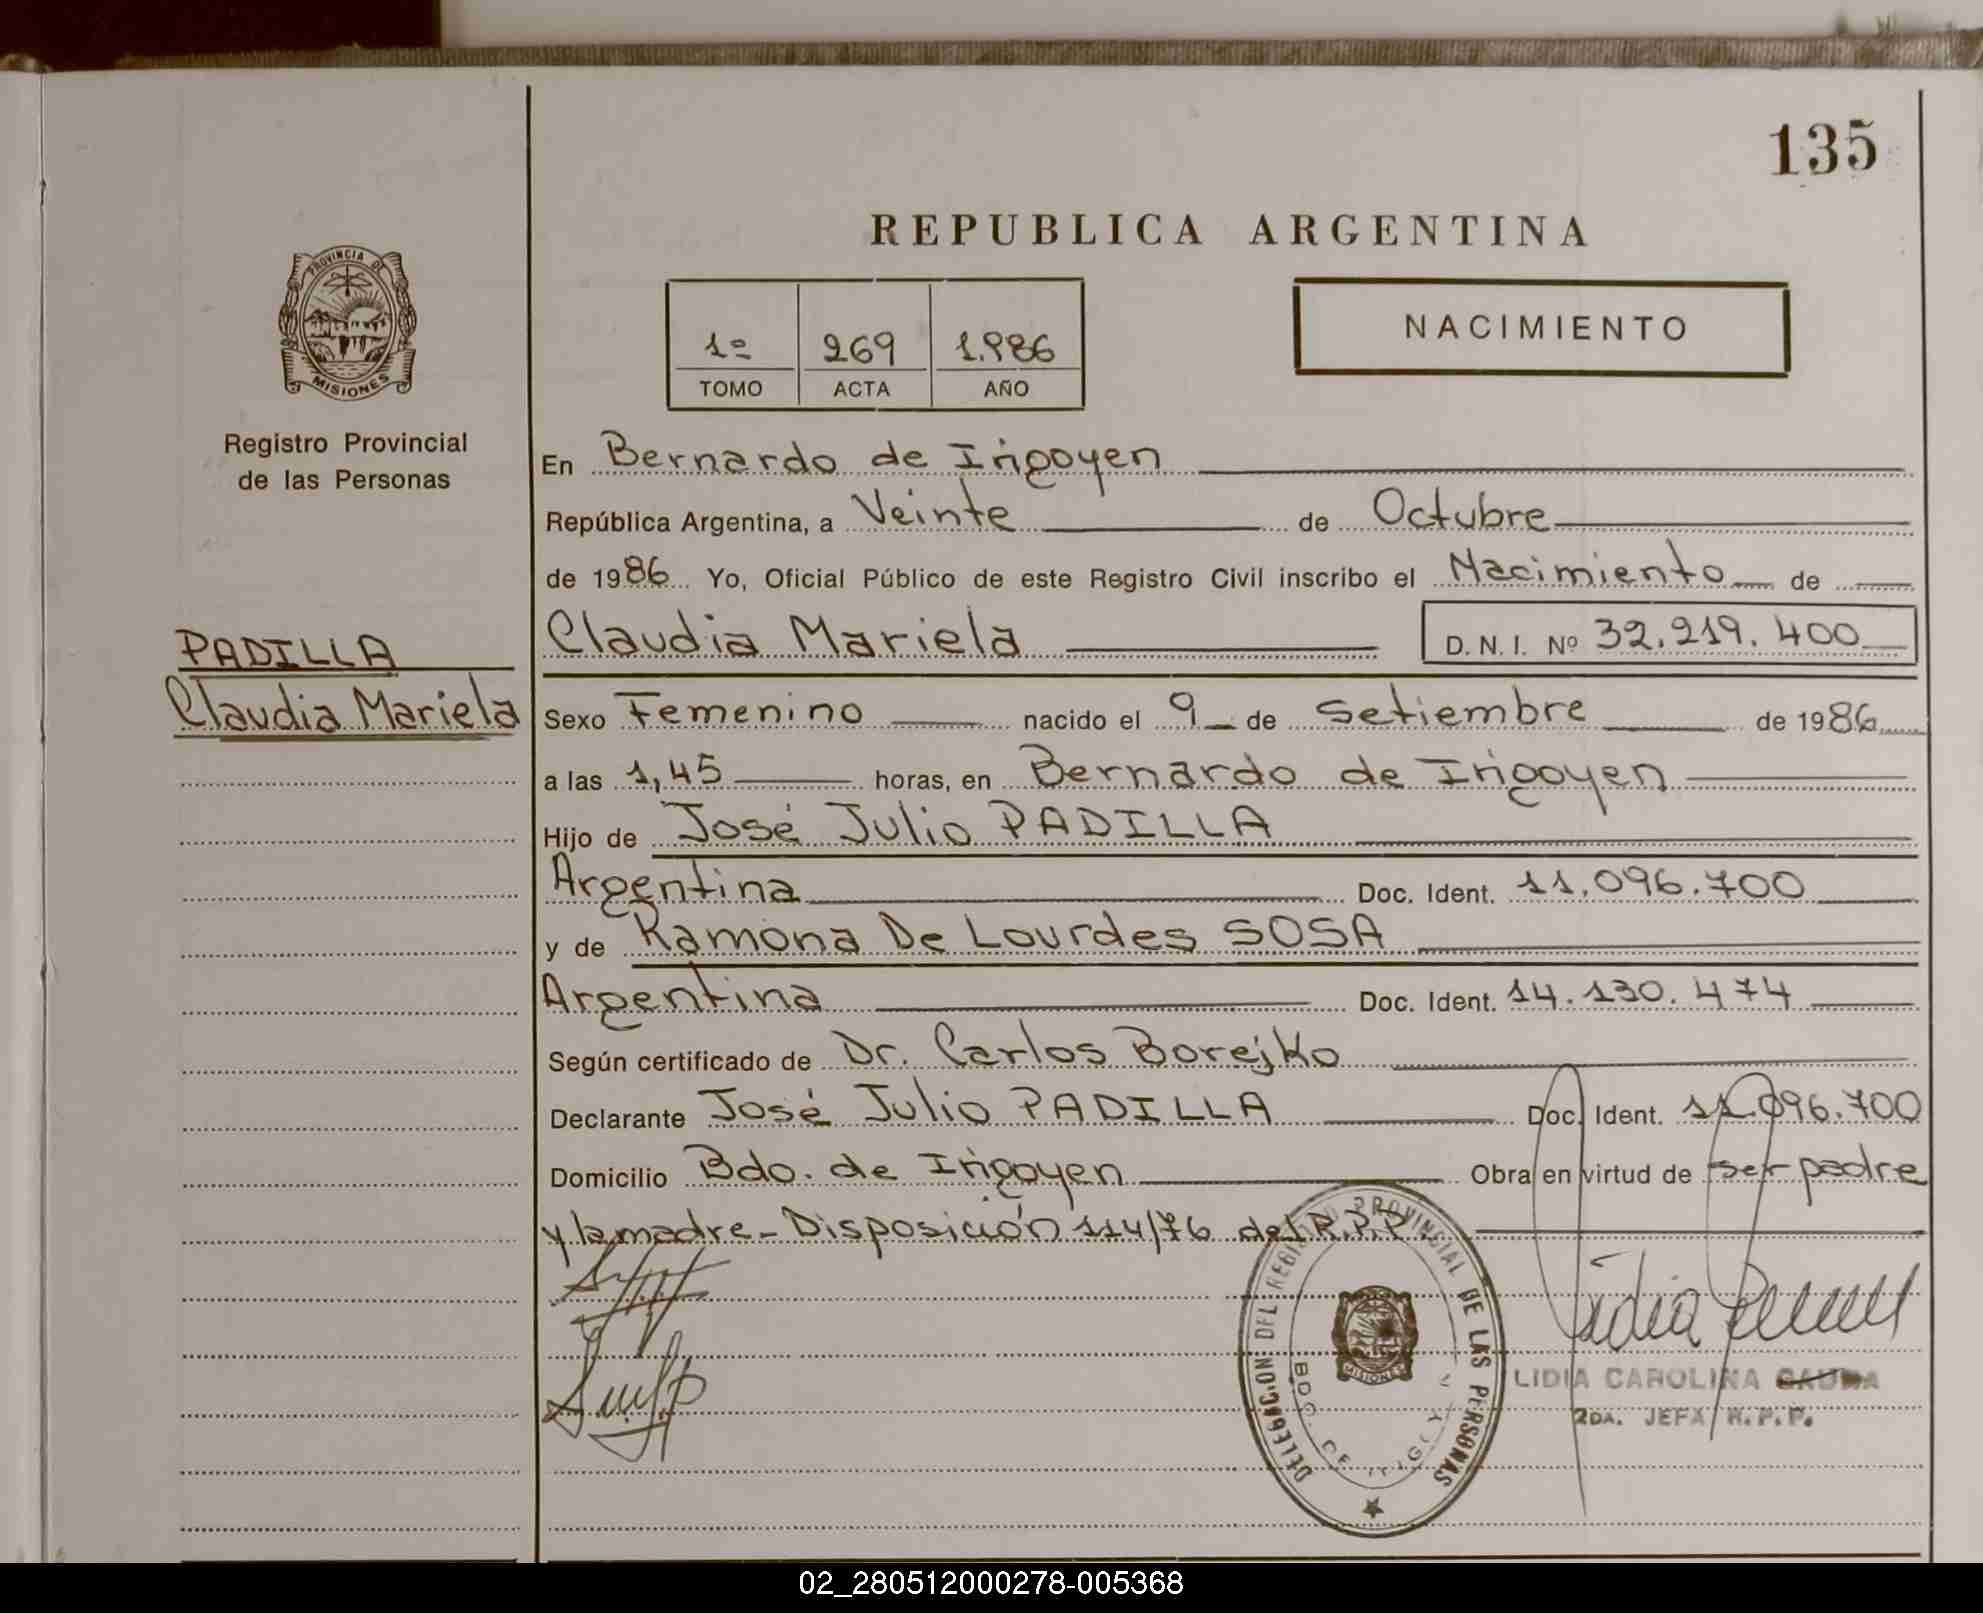 135
REPUBLICA ARGENTINA
PROVINCIA DE
MISIONES
1º 269 1.986
TOMO ACTA AÑO
NACIMIENTO
Registro Provincial
de las Personas
En Bernardo de Irigoyen
República Argentina, a Veinte de Octubre
de 1986 Yo, Oficial Público de este Registro Civil inscribo el Nacimiento de
Claudia Mariela D. N. I. Nº 32.219.400
PADILLA
Claudia Mariela
Sexo Femenino nacido el 9 de Setiembre de 1986
a las 1,45 horas, en Bernardo de Irigoyen
Hijo de José Julio PADILLA
Argentina Doc. Ident. 11.096.700
y de Ramona De Lourdes SOSA
Argentina Doc. Ident. 14.130.474
Según certificado de Dr. Carlos Borejko
Declarante José Julio PADILLA Doc. Ident. 11.096.700
Domicilio Bdo. de Irigoyen Obra en virtud de ser padre
y la madre - Disposición 114/76 del R.P.P.
DELEGACION DEL REGISTRO PROVINCIAL DE LAS PERSONAS
BDO. DE IRIGOYEN
MISIONES
Lidia
LIDIA CAROLINA
2DA. JEFA R. P. P.
02_280512000278-005368